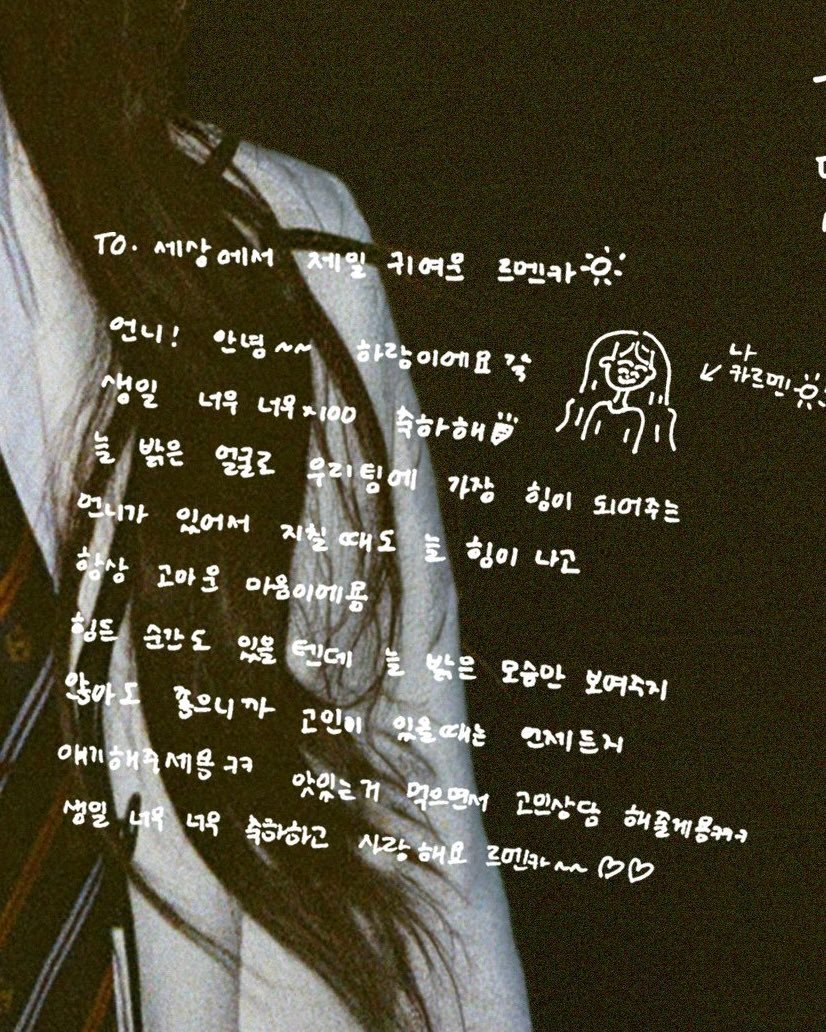 TO. 세상에서 제일 귀여운 르멘카
언니! 안녕~~ 하람이에요
생일 너무 너무×100 축하해
늘 밝은 얼굴로 우리팀에 가장 힘이 되어주는
언니가 있어서 지칠 때도 늘 힘이 나고
항상 고마운 마음이에용
힘든 순간도 있을 텐데 늘 밝은 모습만 보여주지
않아도 좋으니까 고민이 있을때는 언제든지
얘기해주세용 ㅋㅋ 맛있는거 먹으면서 고민상담 해줄게용ㅋㅋㅋ
생일 너무 너무 축하하고 사랑해요 르멘카~~ ♡♡
나
카르멘